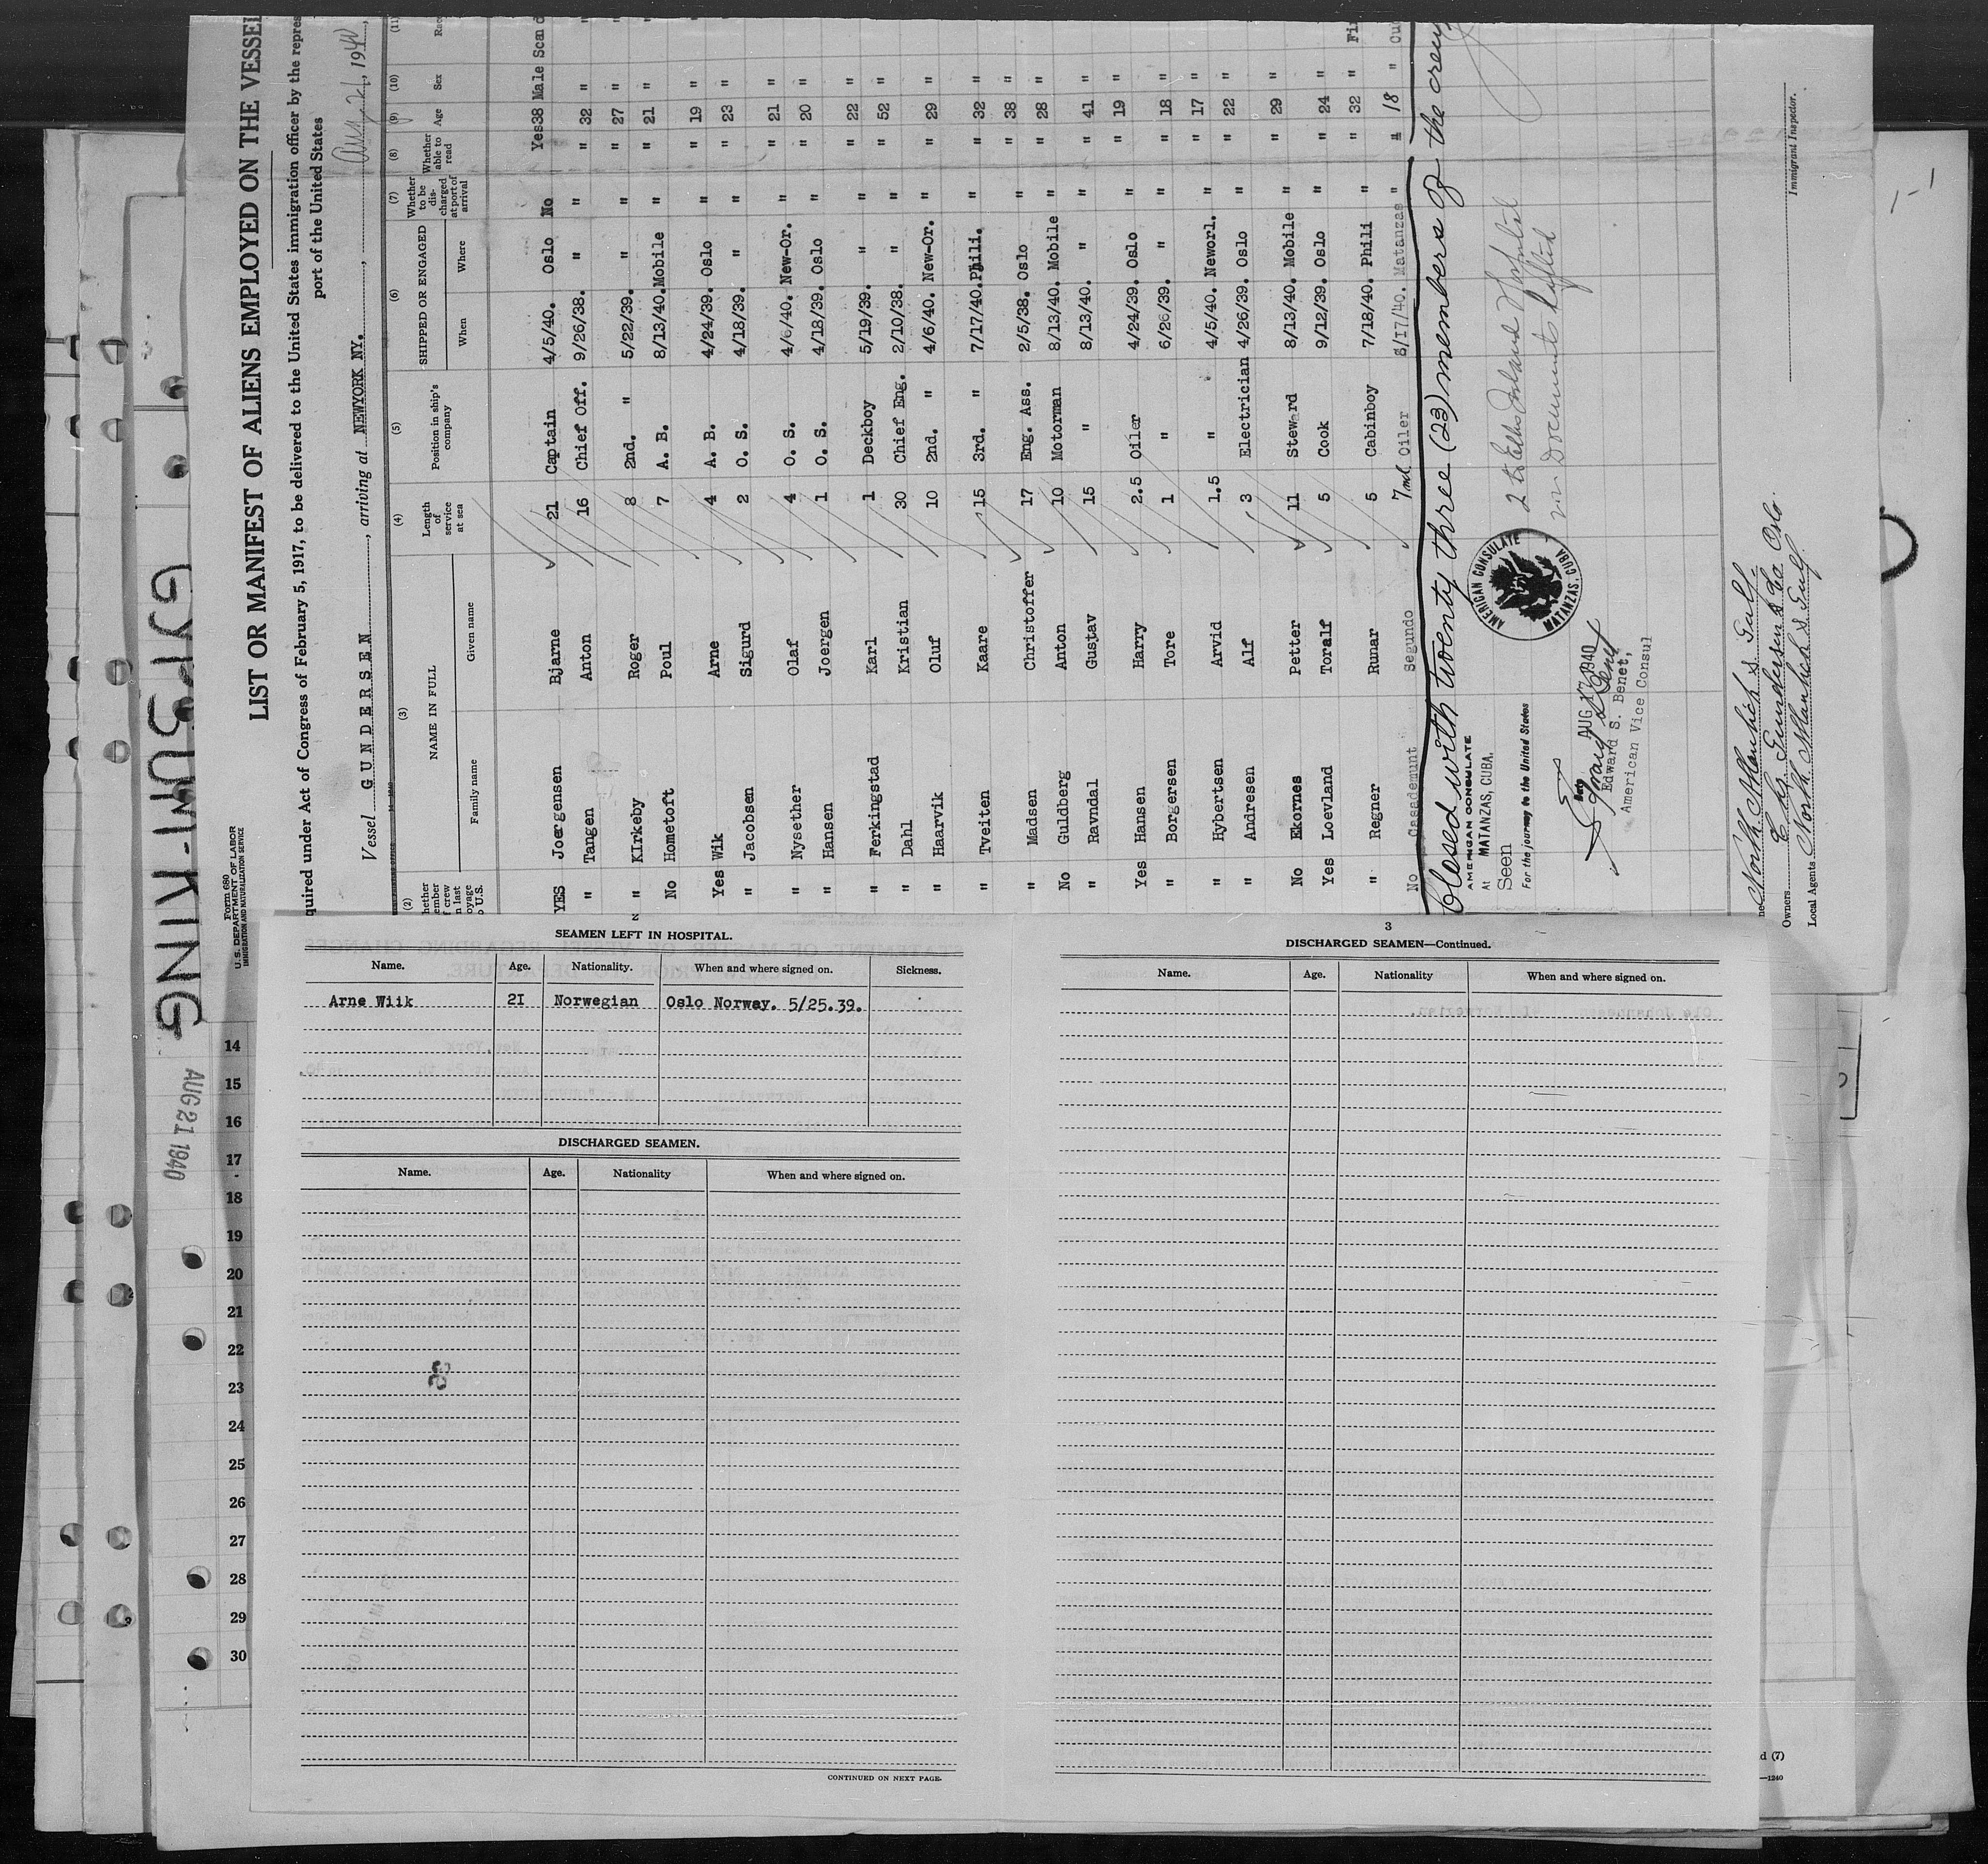 GYPSUM-KING
AUG 21 1940
Form 680
U.S. DEPARTMENT OF LABOR
IMMIGRATION AND NATURALIZATION SERVICE
LIST OR MANIFEST OF ALIENS EMPLOYED ON THE VESSEL
quired under Act of Congress of February 5, 1917, to be delivered to the United States immigration officer by the repres
port of the United States
Vessel GUNDERSEN, arriving at NEWYORK NY., Aug 21, 1940
(2) (3) (4) (5) (6) (7) (8) (9) (10) (11)
hether ember f crew n last oyage o U.S. NAME IN FULL Length of service at sea Position in ship's company SHIPPED OR ENGAGED Whether to be discharged at port of arrival Whether able to read Age Sex Rac
Family name Given name When Where
YES Joergensen Bjarne 21 Captain 4/5/40. Oslo No Yes 38 Male Scand
" Tangen Anton 16 Chief Off. 9/26/38. " " " 32 "
" Kirkeby Roger 8 2nd. " 5/22/39. " " " 27 "
No Hometoft Poul 7 A. B. 8/13/40. Mobile " " 21 "
Yes Wik Arne 4 A. B. 4/24/39. Oslo " " 19 "
" Jacobsen Sigurd 2 O. S. 4/18/39. " " " 23 "
" Nysether Olaf 4 O. S. 4/6/40. New-Or. " " 21 "
" Hansen Joergen 1 O. S. 4/18/39. Oslo " " 20 "
" Ferkingstad Karl 1 Deckboy 5/19/39. " " " 22 "
" Dahl Kristian 30 Chief Eng. 2/10/38. " " " 52 "
" Haarvik Oluf 10 2nd. " 4/6/40. New-Or. " " 29 "
" Tveiten Kaare 15 3rd. " 7/17/40. Phili. " " 32 "
" Madsen Christoffer 17 Eng. Ass. 2/5/38. Oslo " " 38 "
No Guldberg Anton 10 Motorman 8/13/40. Mobile " " 28 "
" Ravndal Gustav 15 " 8/13/40. " " " 41 "
Yes Hansen Harry 2.5 Oiler 4/24/39. Oslo " " 19 "
" Borgeresen Tore 1 " 6/26/39. " " " 18 "
" Hybertsen Arvid 1.5 " 4/5/40. Neworl. " " 17 "
" Andresen Alf 3 Electrician 4/26/39. Oslo " " 22 "
No Ekornes Petter 11 Steward 8/13/40. Mobile " " 29 "
Yes Loevland Toralf 5 Cook 9/12/39. Oslo " " 24 "
" Regner Runar 5 Cabinboy 7/18/40. Phili " " 32 " Fi
No Casademunt Segundo 7 Oiler 8/17/40. Matanzas " " 18 " Cu
Closed with twenty three (23) members of the crew
AMERICAN CONSULATE
At MATANZAS, CUBA.
Seen
For the journey to the United States
AUG 17 1940
Edward S. Benet,
American Vice Consul
AMERICAN CONSULATE
MATANZAS, CUBA
2 to Ellis Island Hospital
Documents lifted
North Atlantic & Gulf
Owners Chs. Gundersen & Co. Oslo.
Local Agents North Atlantic & Gulf
Immigrant Inspector.
SEAMEN LEFT IN HOSPITAL.
Name. Age. Nationality. When and where signed on. Sickness.
Arne Wiik 2I Norwegian Oslo Norway. 5/25.39.
DISCHARGED SEAMEN.
Name. Age. Nationality When and where signed on.
CONTINUED ON NEXT PAGE.
3
DISCHARGED SEAMEN—Continued.
Name. Age. Nationality When and where signed on.
14
15
16
17
18
19
20
21
22
23
24
25
26
27
28
29
30
d (7)
—1240